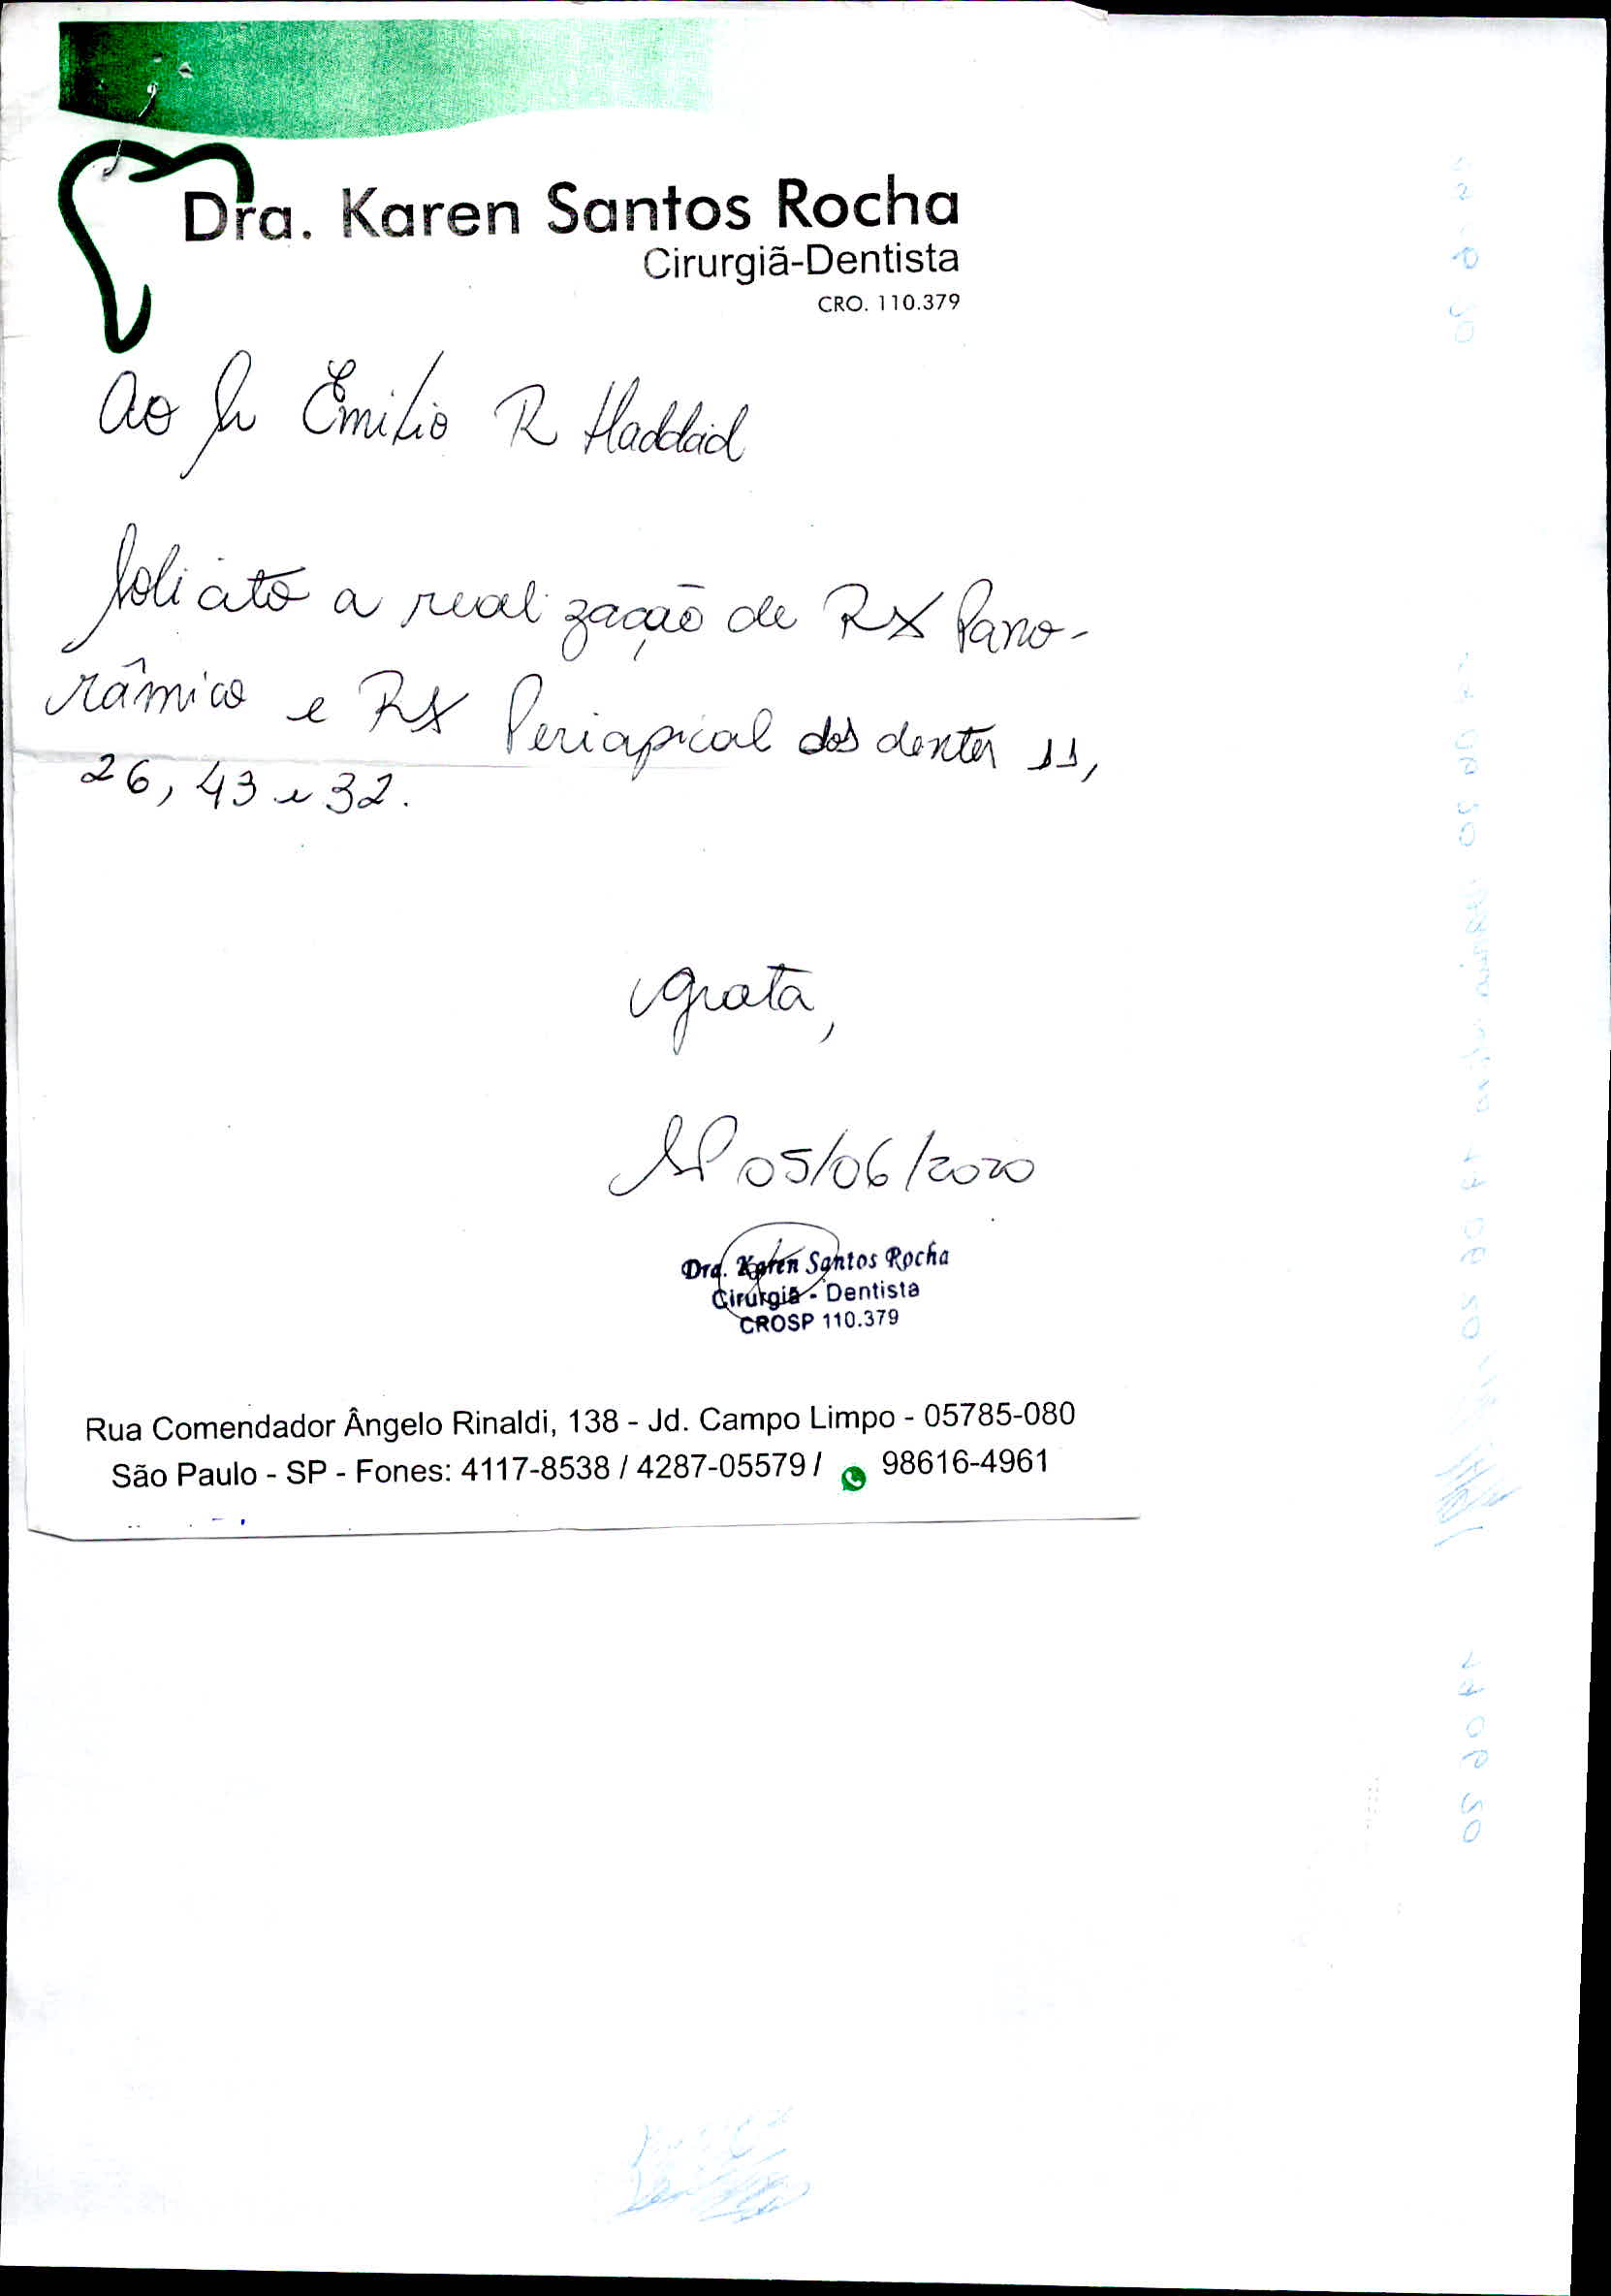 Dra. Karen Santos Rocha
Cirurgiã-Dentista
CRO. 110.379
Ao Sr Emilio R Haddad
Solicito a realização de RX Pano-
râmico e RX Periapical dos dentes 11,
26, 43 e 32.
Grata,
SP 05/06/2020
Dra. Karen Santos Rocha
Cirurgiã - Dentista
CROSP 110.379
Rua Comendador Ângelo Rinaldi, 138 - Jd. Campo Limpo - 05785-080
São Paulo - SP - Fones: 4117-8538 / 4287-05579 / 98616-4961